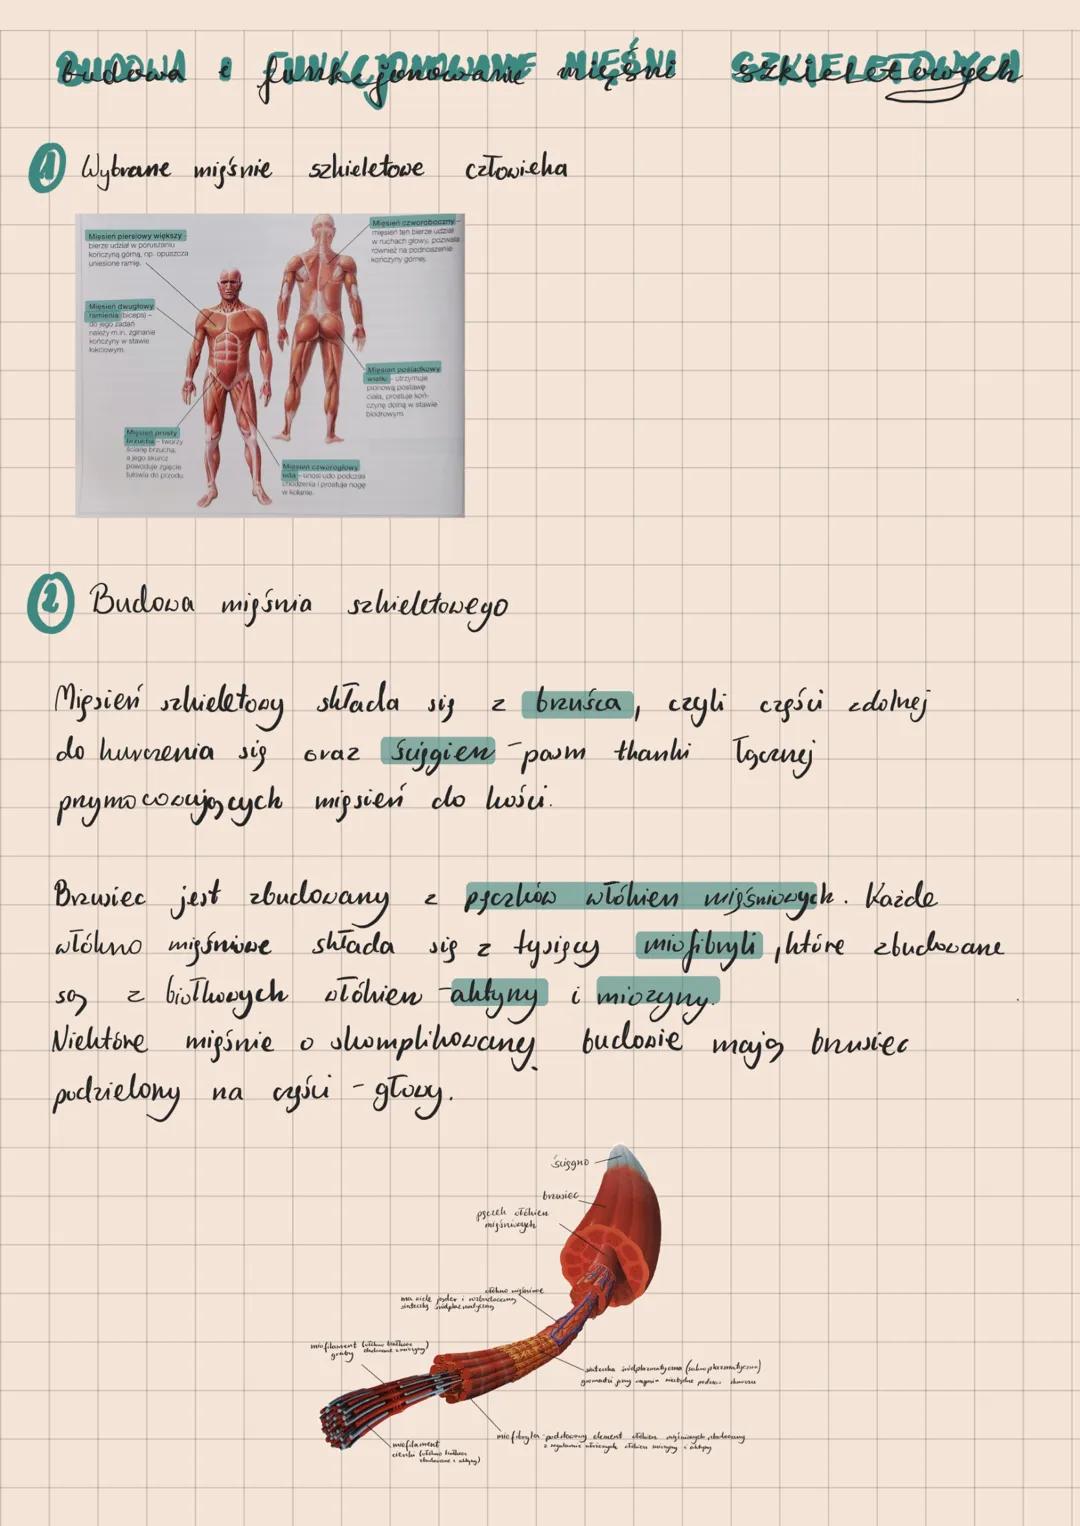 Budowa i funkcjonowanie mięśni szkieletowych
1 Wybrane mięśnie szkieletowe człowieka
Mięsień piersiowy większy -
bierze udział w poruszaniu
kończyną górną, np. opuszcza
uniesione ramię.
Mięsień czworoboczny -
mięsień ten bierze udział
w ruchach głowy, pozwala
również na podnoszenie
kończyny górnej.
Mięsień dwugłowy
ramienia (biceps) -
do jego zadań
należy m.in. zginanie
kończyny w stawie
łokciowym.
Mięsień pośladkowy
wielki - utrzymuje
pionową postawę
ciała, prostuje koń-
czynę dolną w stawie
biodrowym.
Mięsień prosty
brzucha - tworzy
ścianę brzucha,
a jego skurcz
powoduje zgięcie
tułowia do przodu.
Mięsień czworogłowy
uda - unosi udo podczas
chodzenia i prostuje nogę
w kolanie.
2 Budowa mięśnia szkieletowego
Mięsień szkieletowy składa się z brzuśca, czyli części zdolnej
do kurczenia się oraz ścięgien - pasm tkanki łącznej
przymocowujących mięsień do kości.
Brzusiec jest zbudowany z pęczków włókien mięśniowych. Każde
włókno mięśniowe składa się z tysięcy miofibryli, które zbudowane
są z białkowych włókien - aktyny i miozyny.
Niektóre mięśnie o skomplikowanej budowie mają brzusiec
podzielony na części - głowy.
ścięgno
brzusiec
pęczek włókien
mięśniowych
włókno mięśniowe
ma wiele jąder i rozbudowaną
siateczkę śródplazmatyczną
miofilament (włókno białkowe
gruby zbudowane z miozyny)
siateczka śródplazmatyczna (sarkoplazmatyczna)
gromadzi jony wapnia niezbędne podczas skurczu
miofibryla - podstawowy element włókien mięśniowych, zbudowany
z regularnie ułożonych włókien miozyny i aktyny
miofilament
cienki (włókno białkowe
zbudowane z aktyny)